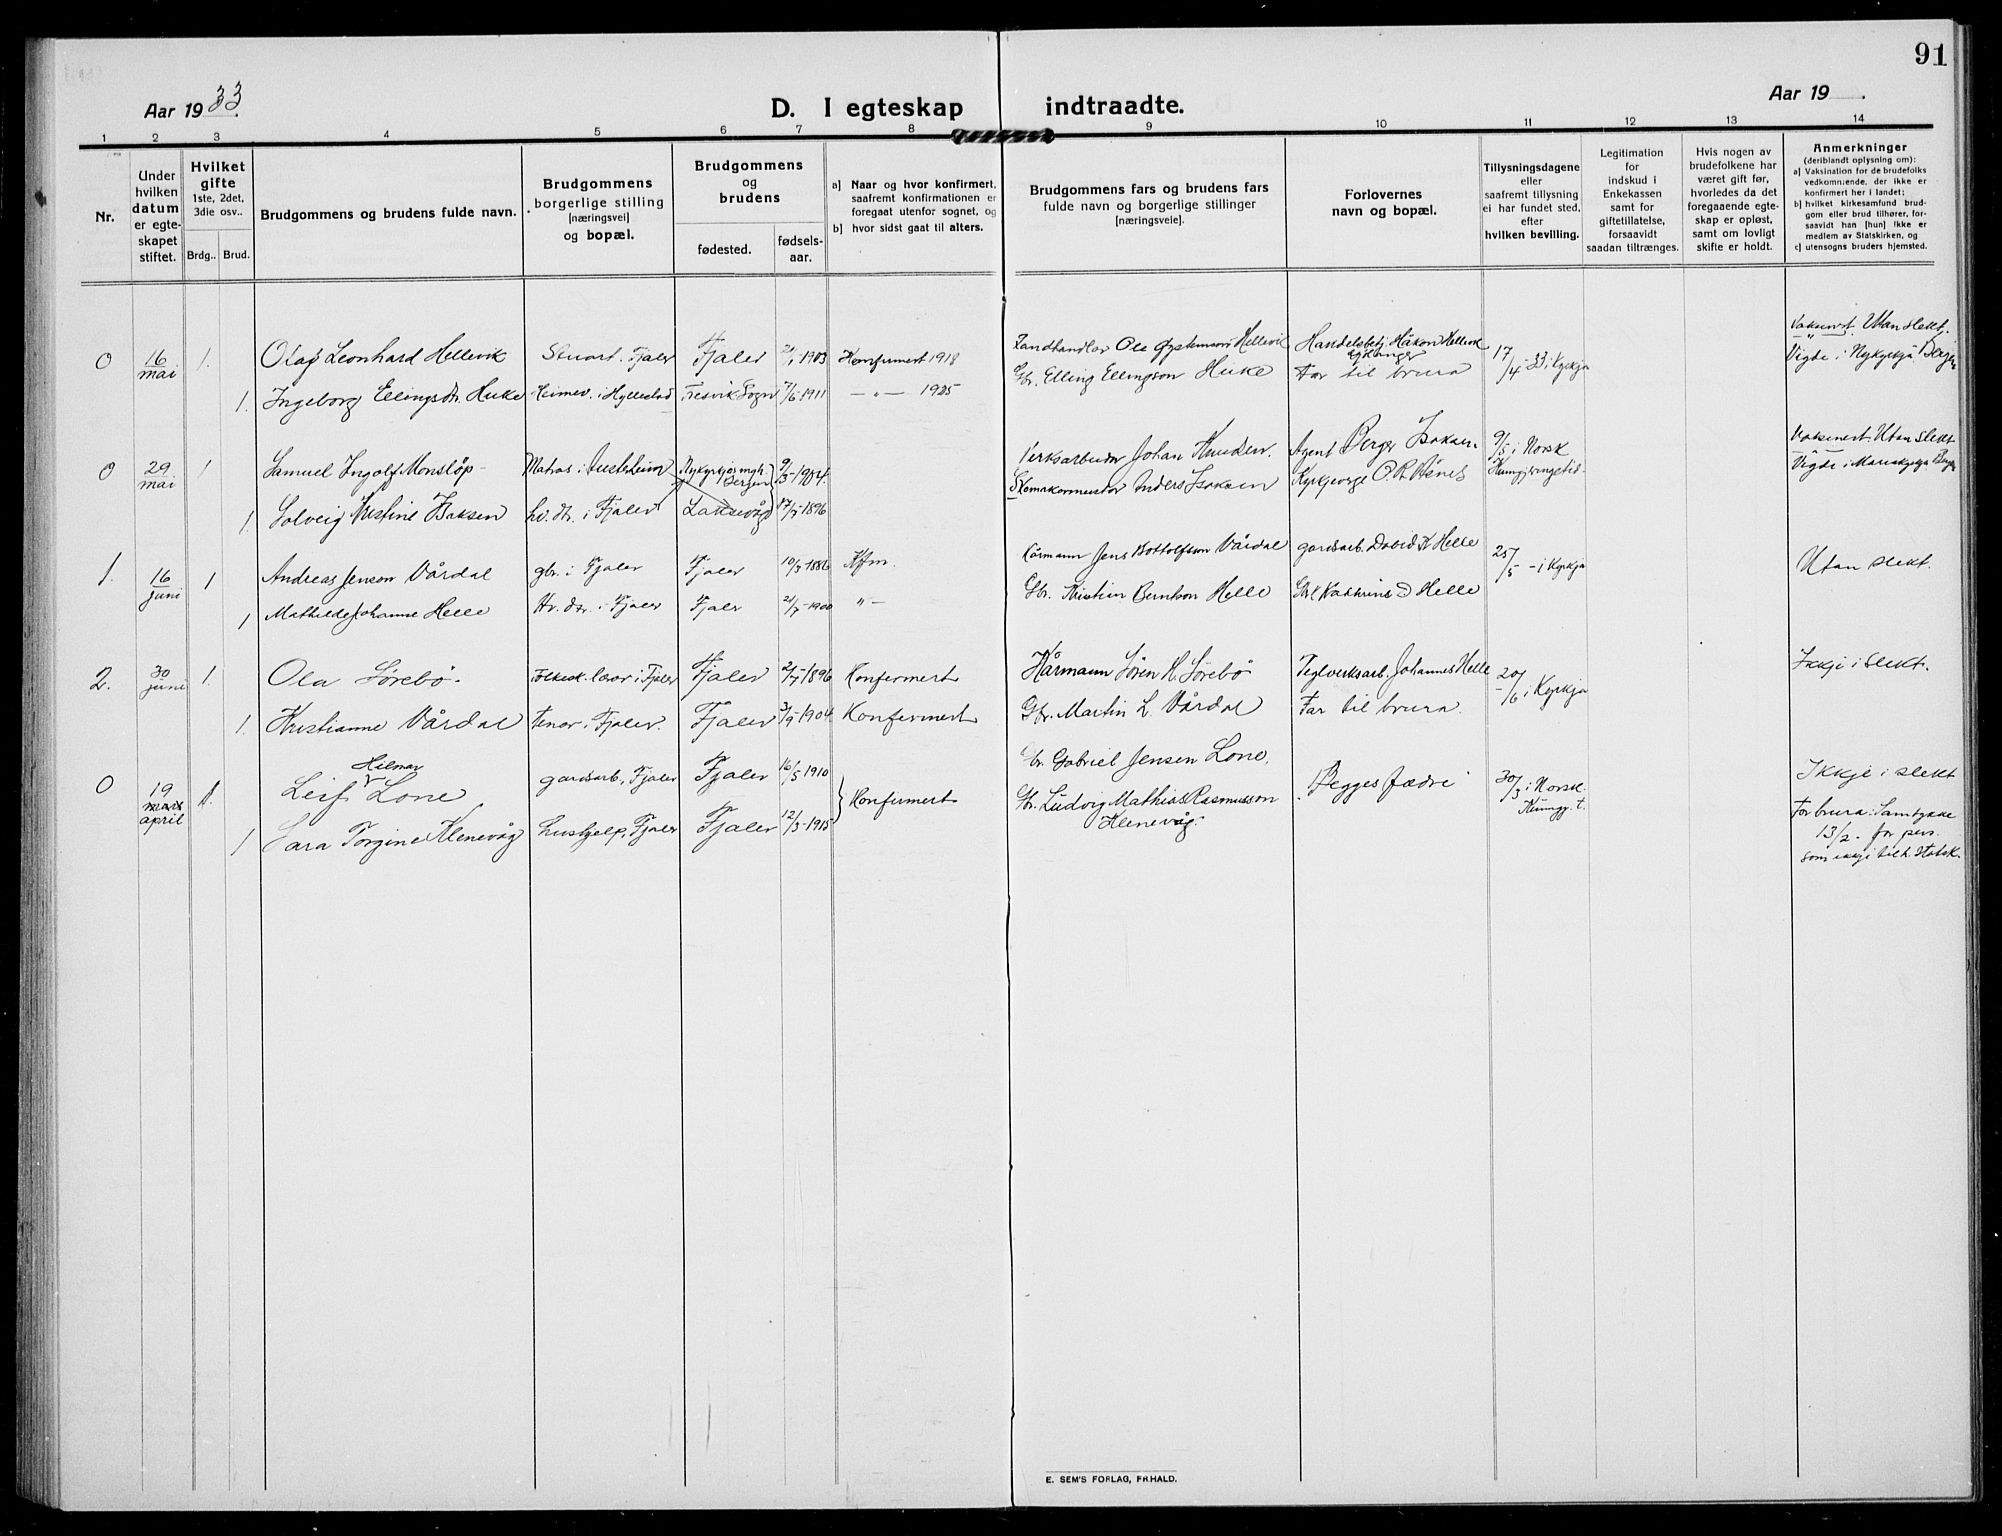 91
Aar 1933.
D. I egteskap indtraadte.
Aar 19 .
1 2 3 4 5 6 7 8 9 10 11 12 13 14
Nr.
Under hvilken datum er egteskapet stiftet.
Hvilket gifte 1ste, 2det, 3die osv..
Brdg.. Brud.
Brudgommens og brudens fulde navn.
Brudgommens borgerlige stilling [næringsvei] og bopæl.
Brudgommens og brudens
fødested. fødselsaar.
a) Naar og hvor konfirmert, saafremt konfirmationen er foregaat utenfor sognet, og
b) hvor sidst gaat til alters.
Brudgommens fars og brudens fars fulde navn og borgerlige stillinger [næringsveie].
Forlovernes navn og bopæl.
Tillysningsdagene eller saafremt tillysning ei har fundet sted, efter hvilken bevilling.
Legitimation for indskud i Enkekassen samt for giftetillatelse, forsaavidt saadan tiltrænges.
Hvis nogen av brudefolkene har været gift før, hvorledes da det foregaaende egteskap er opløst, samt om lovligt skifte er holdt.
Anmerkninger (deriblandt oplysning om):
a) Vaksination for de brudefolks vedkommende, der ikke er konfirmert her i landet;
b) hvilket kirkesamfund brudgom eller brud tilhører, forsaavidt han [hun] ikke er medlem av Statskirken, og
c) utensogns bruders hjemsted.
0 16 mai 1. Olaf Leonhard Hellevik Stuart. Fjaler Fjaler 1903 Konfirmert 1918 Landhandlar Ole Hellevik Handelsbetj. Håkon Hellevik 17/4 33 i kyrkja Vaksinert. Utan slekt. Vigde i Nykyrkja Bergen
1. Ingeborg Ellingsdtr. Huke Heimev. i Hyllestad Fresvik Sogn 7/6 1911 — " — 1925 Gbr. Elling Ellingson Huke Far til brura
0 29 mai 1 Samuel Ingolf Monsløp Matros i Austrheim Nykyrkje Bergen 9/5-1904. Verksarbeider Johan Knudsen. Agent Berger Isaksen 9/5 i Norsk Kunngjeringstid. Vaksinert. Utan slekt Vigde i Mariakyrkja Bergen
1. Solveig Kristine Isaksen hv. dtr. i Fjaler Laksevåg 17/7-1896 Skomakarmeister Anders Isaksen Kyrkjeverje O. R. Åsnes
1. 16 juni 1 Andreas Jenson Vårdal gbr. i Fjaler Fjaler 10/3-1886 Kfm. Kårmann Jens Bottolfson Vårdal gardsarb. David K Helle 25/5 - i kyrkja Utan slekt.
1 Mathilde Johanne Helle Hv. dtr. i Fjaler Fjaler 21/7-1900 " — Gbr. Kristen Berntson Helle Frk Kathrine D Helle
2. 30 juni 1. Ola Sørebö. Folkesk. lærar i Fjaler Fjaler 2/7-1896 Konfermert Kårmann Sören K. Sørebö Teglverksarb. Johannes Helle 20/6 i kyrkja Ikkje i slekt.
1. Kristianne Vårdal Tenar i Fjaler. Fjaler 3/9-1904. Konfermert Gbr. Martin L. Vårdal Far til brura.
0 19 mars april 1. Leif Hilmar Lone gardsarb., Fjaler Fjaler 16/5-1910 Konfermert Gbr. Gabriel Jensen Lone, Begges fædre 30/3 i Norsk. Kunngj. t. Ikkje i slekt
1 Sara Torgine Klenevåg hushjelp, Fjaler Fjaler 12/3-1915 Gbr. Ludvig Mathias Rasmusson Klenevåg. For brura: Samtykke 13/2. for pers. som ikkje tilh. Statsk.
E. SEM'S FORLAG, FR.HALD.